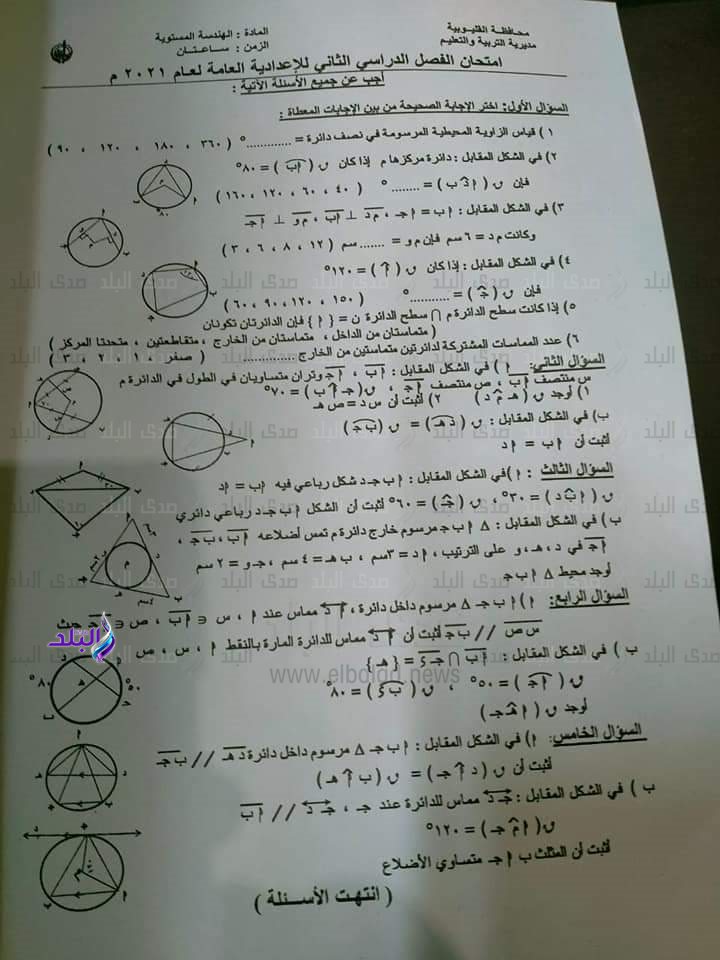 محافظة القليوبية
مديرية التربية والتعليم
المادة : الهندسة المستوية
الزمن : ساعتان
امتحان الفصل الدراسي الثاني للإعدادية العامة لعام ٢٠٢١ م
أجب عن جميع الأسئلة الآتية :
السؤال الأول: اختر الإجابة الصحيحة من بين الإجابات المعطاة :
١ ) قياس الزاوية المحيطية المرسومة في نصف دائرة = ............° ( ٣٦٠ ، ١٨٠ ، ١٢٠ ، ٩٠ )
٢) في الشكل المقابل : دائرة مركزها م إذا كان ق ( اب ) = ٨٠°
فإن ق ( ا ب ) = ........ ° ( ٤٠ ، ٦٠ ، ١٢٠ ، ١٦٠ )
٣) في الشكل المقابل : اب = اجـ ، م د ⊥ اب ، م و ⊥ اجـ
وكانت م د = ٦ سم فإن م و = ....... سم ( ١٢ ، ٨ ، ٦ ، ٣ )
٤) في الشكل المقابل : إذا كان ق ( ا ) = ١٢٠°
فإن ق ( جـ ) = ...........° ( ١٥٠ ، ١٢٠ ، ٩٠ ، ٦٠ )
٥) إذا كانت سطح الدائرة م ∩ سطح الدائرة ن = { ا } فإن الدائرتان تكونان
( متماستان من الداخل ، متماستان من الخارج ، متقاطعتين ، متحدتا المركز )
٦) عدد المماسات المشتركة لدائرتين متماستين من الخارج .............. ( صفر ، ١ ، ٢ ، ٣ )
السؤال الثاني: ا ) في الشكل المقابل : اب ، اجـ وتران متساويان في الطول في الدائرة م
س منتصف اب ، ص منتصف اجـ ، ق( جـ ا ب ) = ٧٠°
١) أوجد ق ( هـ م د ) ٢) أثبت أن س د = ص هـ
ب) في الشكل المقابل : ق ( د هـ ) = ق ( ب جـ )
أثبت أن اب = اد
السؤال الثالث : ا ) في الشكل المقابل : اب جـ د شكل رباعي فيه اب = اد
ق ( ا ب د ) = ٣٠° ، ق ( جـ ) = ٦٠° أثبت أن الشكل اب جـ د رباعي دائري
ب ) في الشكل المقابل : Δ اب جـ مرسوم خارج دائرة م تمس أضلاعه اب ، ب جـ ،
اجـ في د ، هـ ، و على الترتيب ، اد = ٣سم ، ب هـ = ٤ سم ، جـ و = ٢ سم
أوجد محيط Δ اب جـ
السؤال الرابع: ا ) اب جـ Δ مرسوم داخل دائرة ، اد مماس عند ا ، س ∈ اب ، ص ∈ اجـ حيث
س ص // ب جـ أثبت أن اد مماس للدائرة المارة بالنقط ا ، س ، ص
ب ) في الشكل المقابل : اب ∩ جـ د = { هـ }
ق ( اجـ ) = ٥٠° ، ق ( ب د ) = ٨٠°
أوجد ق ( ا هـ جـ )
السؤال الخامس: ا ) في الشكل المقابل : اب جـ Δ مرسوم داخل دائرة د هـ // ب جـ
أثبت أن ق ( د ا جـ ) = ق ( ب ا هـ )
ب ) في الشكل المقابل : جـ د مماس للدائرة عند جـ ، جـ د // اب
ق( ا م جـ ) = ١٢٠°
أثبت أن المثلث ب ا جـ متساوي الأضلاع
( انتهت الأسئلة )
البلد
www.elbalad.news
صدى البلد